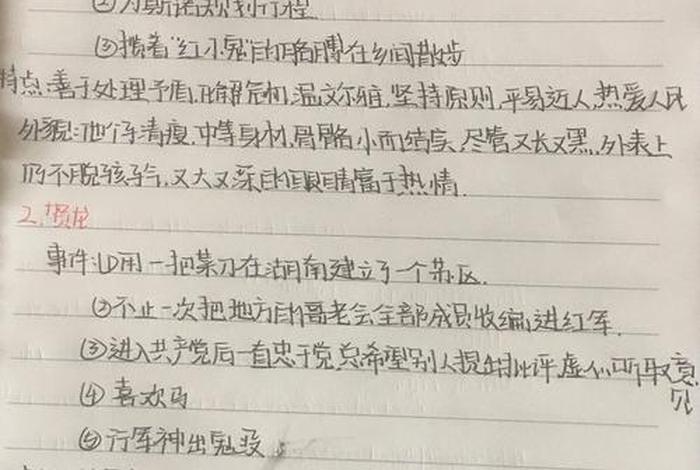 ②为斯诺规划行程
③搂着"红小鬼"的胳膊在乡间散步
特点:善于处理矛盾,化解危机,温文尔雅,坚持原则,平易近人,热爱人民
外貌:他个子清瘦,中等身材,骨骼小而结实,尽管又长又黑,外表上
仍不脱孩子气,又大又深的眼睛富于热情.
2.贺龙
事件:①用一把菜刀在湖南建立了一个苏区.
②不止一次把地方的哥老会全部成员收编进红军.
③进入共产党后一直忠于党,总希望别人提出批评,虚心听取意
见
④喜欢马
⑤行军神出鬼没